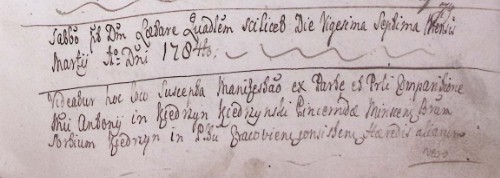 Sabbo Pt Dnm Lætare Quadlem scilicet Die Vigesima Septima Mensis
Martij Ao Dni 1784to.
Videatur hoc loco Suscepta Manifestāo ex Parte et Prli Comparitione
Mci Antonij in Kiedrzyn Kiedrzynski Pincernidæ Bonorum
Kiedrzyn in Cracovien consisten Hæredis
vero